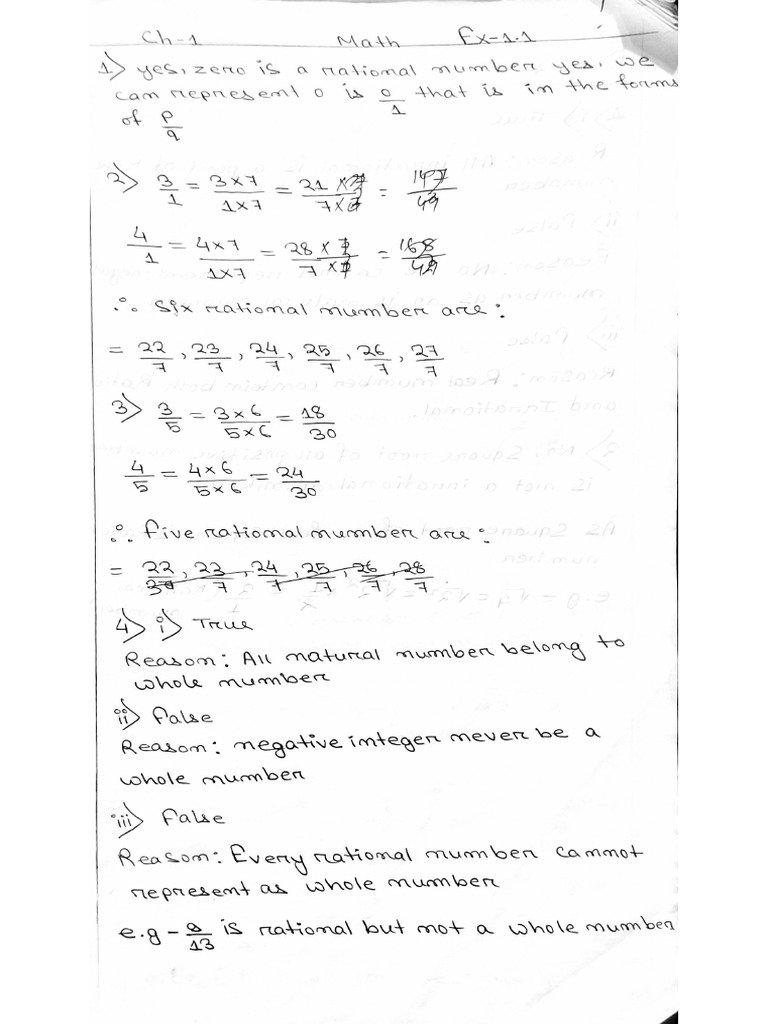 Ch-1 Math Ex-1.1
1) yes, zero is a rational number yes, we
can represent 0 is 0/1 that is in the forms
of p/q
2) 3/1 = 3×7/1×7 = 21/7
4/1 = 4×7/1×7 = 28/7
∴ six rational number are:
= 22/7, 23/7, 24/7, 25/7, 26/7, 27/7
3) 3/5 = 3×6/5×6 = 18/30
4/5 = 4×6/5×6 = 24/30
∴ five rational number are:
= 22/30, 23/7, 24/7, 25/7, 26/7, 28/7
4) i) True
Reason: All natural number belong to
whole number
ii) False
Reason: negative integer never be a
whole number
iii) False
Reason: Every rational number cannot
represent as whole number
e.g - /13 is rational but not a whole number